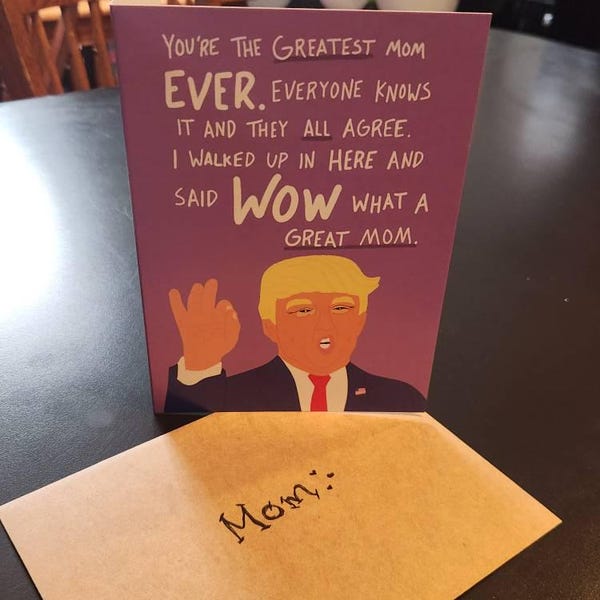 YOU'RE THE GREATEST MOM
EVER. EVERYONE KNOWS
IT AND THEY ALL AGREE.
I WALKED UP IN HERE AND
SAID WOW WHAT A
GREAT MOM.
Mom: